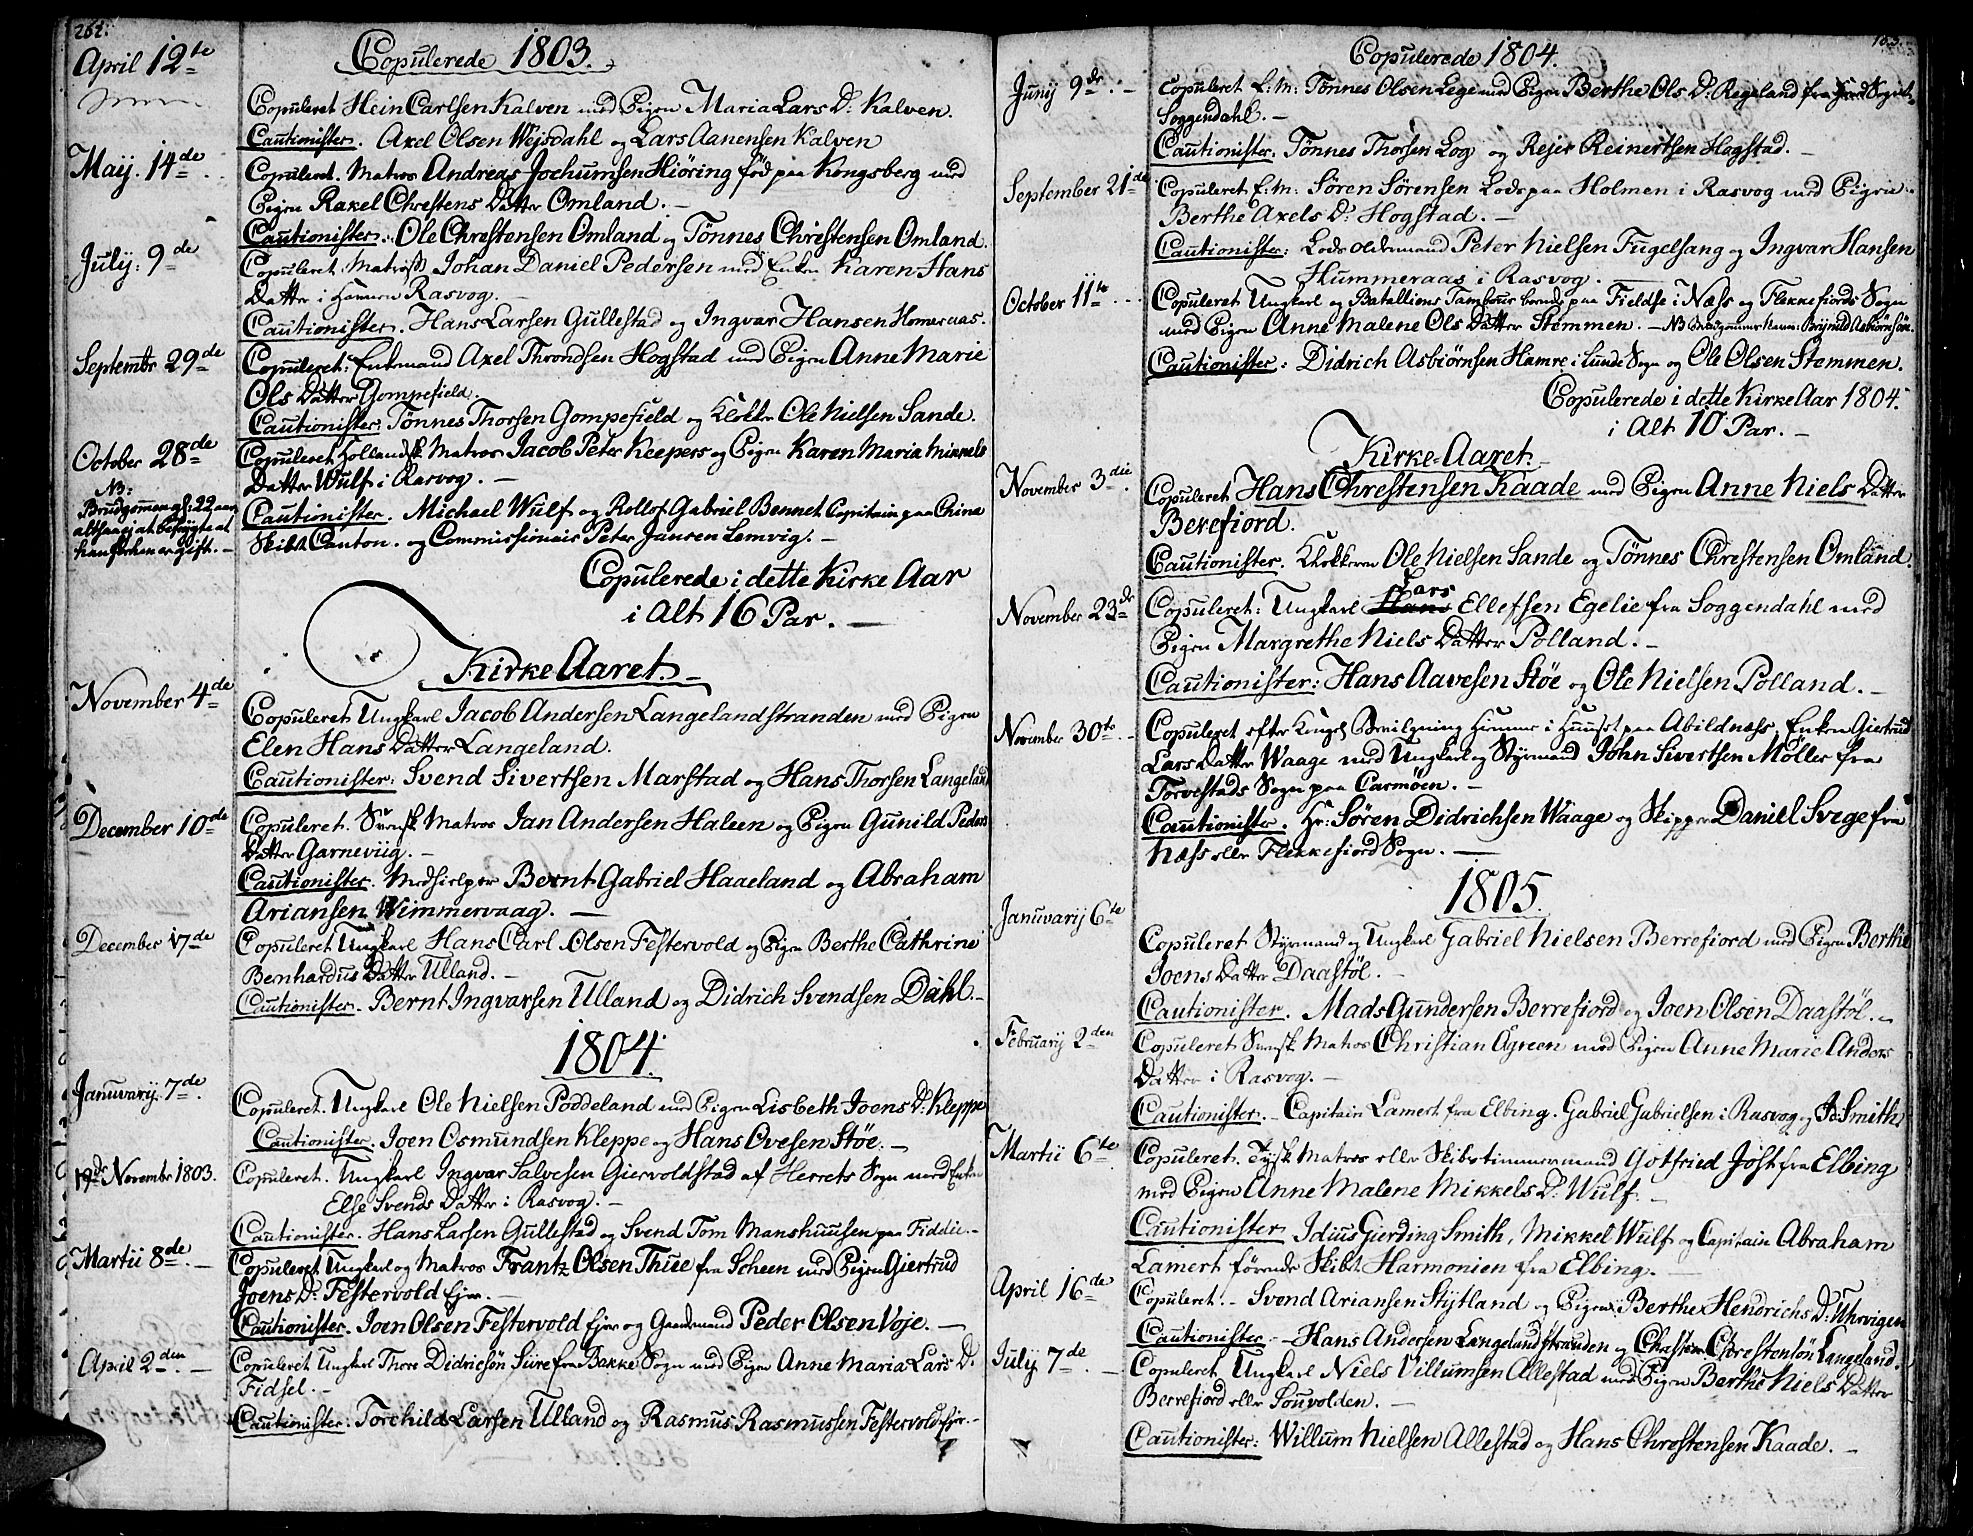 262.
Copulerede 1803.
April 12te
Copuleret Hein Carlsen Kalven med Pigen Maria Lars D. Kalven.
Cautionister. Axel Olsen Wejsdahl og Lars Aanensen Kalven
Maij. 14de
Copuleret. Matros Andreas Jochumsen Hiöring fød paa Kongsberg med
Pigen Rakel Chrestens Datter Omland. -
Cautionister. Ole Chrestensen Omland og Tönnes Christensen Omland.
July: 9de
Copuleret. Matross Johan Daniel Pedersen med Enken Karen Hans
Datter i Rasvog. -
Cautionister. Hans Larsen Gullestad og Ingvar Hansen Homeraas.
Septembr 29de
Copuleret: Enkemand Axel Throndsen Hogstad med Pigen Anne Marie
Ols Datter Gompefield.
Cautionister. Tönnes Thorsen Gompefield og Klokker Ole Nielsen Sande.
October 28de
Copuleret Hollandsk Matros Jacob Peter Keepers og Pigen Karen Maria Mikkels
Datter Wulf i Rasvog. -
NB:
Brudgommen gl: 22 aar
altsaa ej at befrygte at
han förhen er gift. -
Cautionister. Michael Wulf og Rollof Gabriel Bennet Capitain paa China
Skibet Canton. og Commissionair Peter Jansen Lemvig. -
Copulerede i dette Kirke Aar
i Alt 16 Par. -
Kirke Aaret. -
November 4de
Copuleret Ungkarl Jacob Andersen Langelandstranden med Pigen
Elen Hans Datter Langeland.
Cautionister: Svend Sivertsen Marstad og Hans Thorsen Langeland
December 10de
Copuleret. Svensk Matros Jan Andersen Haleen og Pigen Gunild Peders
Datter Garneviig. -
Cautionister. Medhielper Bernt Gabriel Haaeland og Abraham
Ariansen Wimmervaag. -
December 17de
Copuleret Ungkarl Hans Carl Olsen Festervold og Pigen Berthe Cathrine
Benhardus Datter Ulland. -
Cautionister. Bernt Ingvarsen Ulland og Didrich Svendsen Dahl. -
1804.
Januvarij 7de.
Copuleret. Ungkarl Ole Nielsen Poddeland med Pigen Lisbeth Joens D. Kleppe
Cautionister. Joen Osmundsen Kleppe og Hans Ovesen Stöe. -
19de November 1803.
Copuleret. Ungkarl Ingvar Salvesen Giervoldstad af Herrets Sogn med Enken
Else Svends Datter i Rasvog. -
Cautionister. Hans Larsen Gullestad og Svend Tom Manshuusen paa Fiddie. -
Martii 8de. -
Copuleret Ungkarl og Matros Frantz Olsen Thue fra Scheen med Pigen Giertrud
Joens D. Festervold fjer. -
Cautionister. Joen Olsen Festervold fjer og Gaardmand Peder Olsen Voje. -
April 2den. -
Copuleret Ungkarl Thore Didrichsön Siire fra Bakke Sogn med Pigen Anne Maria Lars D.
Fidsel. -
Cautionister. Torchild Larsen Ulland og Rasmus Rasmussen Festervold fjer. -
Copulerede 1804.
Junij 9de. -
Copuleret E: M: Tönnes Olsen Lege med Pigen Berthe Ols D. Rageland fra Sogn
Soggendahl. -
Cautionister. Tönnes Thorsen Log og Rejer Reinertsen Hagstad. -
September 21de
Copuleret E: M: Sören Sörensen Lods paa Holmen i Rasvog med Pigen
Berthe Axels D. Hogstad. -
Cautionister: Lods oldermand Peter Nielsen Fugelsang og Ingvar Hansen
Hummeraas i Rasvog. -
October 11te
Copuleret Ungkarl og Batallions Tambour boende paa Fieldse i Næss og Flekkefiords Sogn
med Pigen Anne Malene Ols Datter Stemmen. - NB Brudgommens Navn: Brynild Asbiörnsön.
Cautionister: Didrich Asbiörnsen Hamre i Lunde Sogn og Ole Olsen Stemmen.
Copulerede i dette Kirke Aar 1804.
i Alt 10 Par. -
Kirke-Aaret. -
November 3die.
Copuleret Hans Chrestensen Kaade med Pigen Anne Niels Datter
Berefiord.
Cautionister. Klokkeren Ole Nielsen Sande og Tönnes Chrestensen Omland.
November 23de
Copuleret: Ungkarl Lars Ellefsen Egelie fra Soggendahl med
Pigen Margrethe Niels Datter Polland. -
Cautionister: Hans Aavesen Stöe og Ole Nielsen Polland. -
November 30te. -
Copuleret efter Kongel Bevilgning hiemme i Huuset paa Abildnæss, Enken Giertrud
Lars Datter Waage med Ungkarl og Styrmand John Sivertsen Möller fra
Torvestads Sogn paa Carmöen. -
Cautionister. Hr: Sören Didrichsen Waage og Skipper Daniel Svege fra
Næss eller Flekkefiord Sogn. -
1805.
Januvarij 6te
Copuleret Styrmand og Ungkarl Gabriel Nielsen Berrefiord med Pigen Berthe
Joens Datter Daastöl. -
Cautionister. Mads Gundersen Berrefiord og Joen Olsen Daastöl. -
Februarij 2den
Copuleret Svensk Matros Christian Agreen med Pigen Anne Marie Anders
Datter i Rasvog. -
Cautionister. - Capitain Lamert fra Elbing. Gabriel Gabrielsen i Rasvog og Smith
Martii 6te
Copuleret. Tysk Matros eller Skibstimmermand Gotfried Jost fra Elbing
med Pigen Anne Malene Mikkels D. Wulf. -
Cautionister Idius Gierding Smith, Mikkel Wulf og Capitain Abraham
Lamert förende Skibet Harmonien fra Elbing. -
April 16de
Copuleret. - Svend Ariansen Stijtland og Pigen Berthe Hendrichs D. Uhrvigen
Cautionister - Hans Andersen Langelandstranden og Chresten Chrestensön Langeland. -
July 7de. -
Copuleret Ungkarl Niels Villumsen Allestad med Pigen Berthe Niels Datter
Berrefiord eller Souvolden. -
Cautionister: Willum Nielsen Allestad og Hans Chrestensen Kaade. -